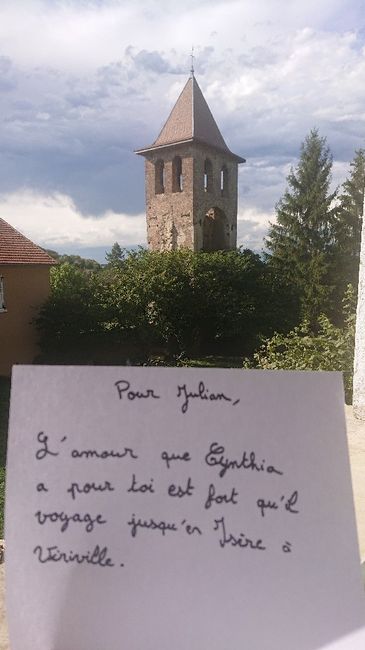 Pour Julian,
L'amour que Cynthia
a pour toi est fort qu'il
voyage jusqu'en Isère à
Viriville.